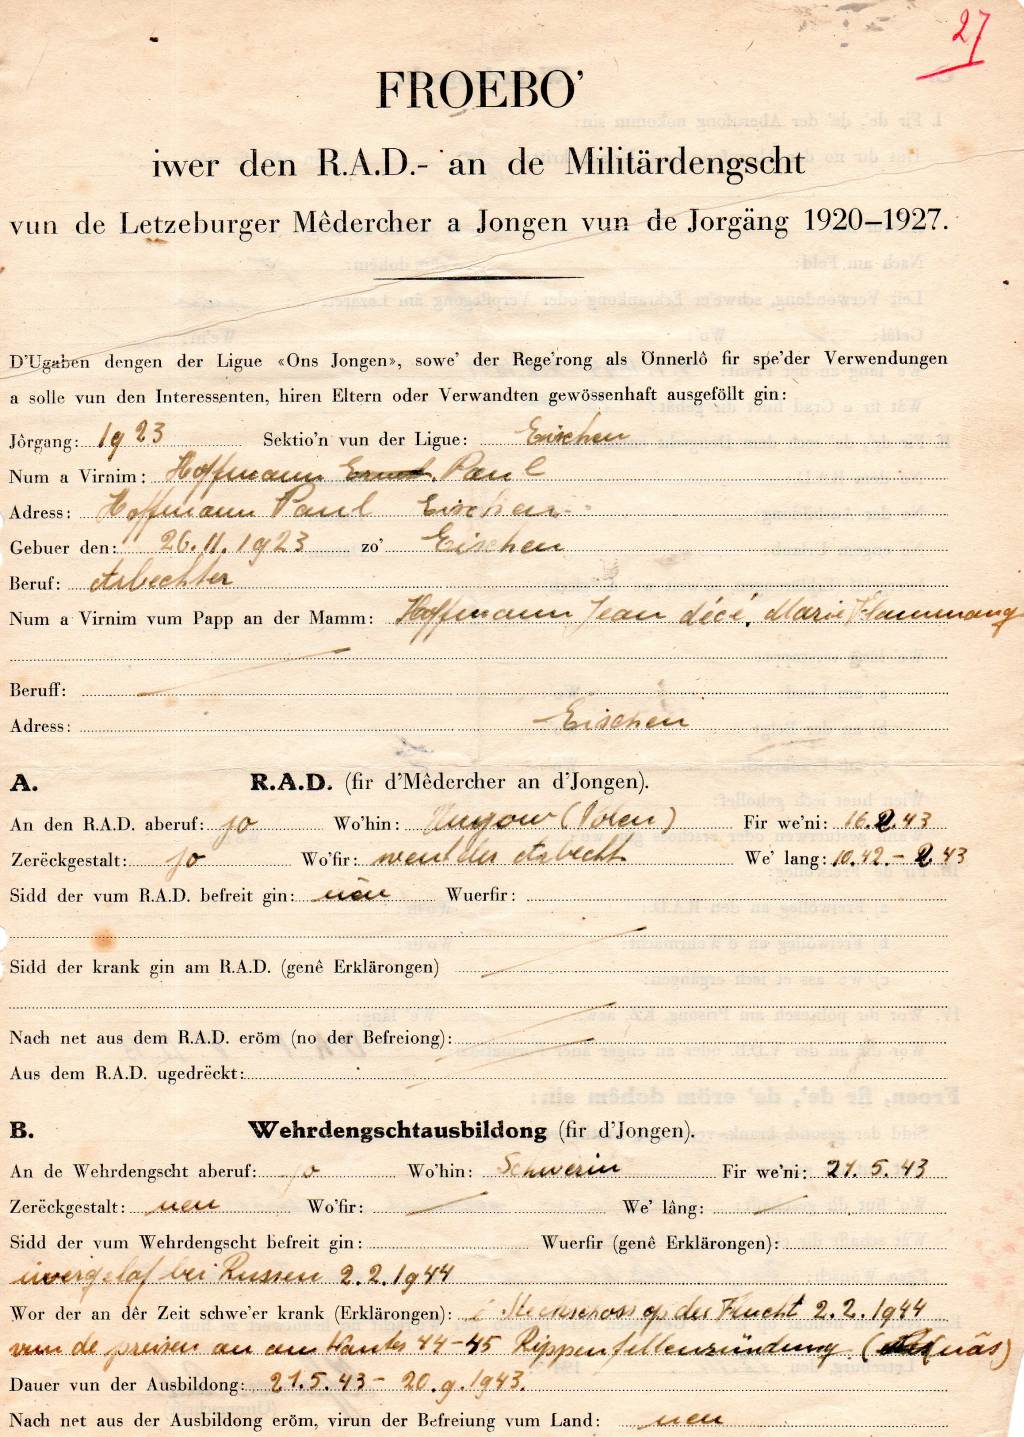 27
FROEBO'
iwer den R.A.D.- an de Militärdengscht
vun de Letzeburger Mêdercher a Jongen vun de Jorgäng 1920–1927.
D'Ugaben dengen der Ligue «Ons Jongen», sowe' der Rege'rong als Önnerlô fir spe'der Verwendungen
a solle vun den Interessenten, hiren Eltern oder Verwandten gewössenhaft ausgeföllt gin:
Jôrgang: 1923 Sektio'n vun der Ligue: Eischen
Num a Virnim: Hoffmann Ernst Paul
Adress: Hoffmann Paul Eischen
Gebuer den: 26.11.1923 zo' Eischen
Beruf: Arbechter
Num a Virnim vum Papp an der Mamm: Hoffmann Jean décé. Marie Hammang
Beruff:
Adress: Eischen
A. R.A.D. (fir d'Mêdercher an d'Jongen).
An den R.A.D. aberuf: jo Wo'hin: (Polen) Fir we'ni: 16.2.43
Zerëckgestalt: jo Wo'fir: went der Arbecht We' lang: 10.42.–2.43
Sidd der vum R.A.D. befreit gin: nên Wuerfir:
Sidd der krank gin am R.A.D. (genê Erklärongen)
Nach net aus dem R.A.D. eröm (no der Befreiong):
Aus dem R.A.D. ugedrëckt:
B. Wehrdengschtausbildong (fir d'Jongen).
An de Wehrdengscht aberuf: jo Wo'hin: Schwerin Fir we'ni: 21.5.43
Zerëckgestalt: nen Wo'fir: We' lâng:
Sidd der vum Wehrdengscht befreit gin: Wuerfir (genê Erklärongen):
iwergelaf bei Russen 2.2.1944
Wor der an dêr Zeit schwe'er krank (Erklärongen): op der Flucht 2.2.1944
vun de preisen an am Wanter 44–45 Rippenfellenzündung (näs)
Dauer vun der Ausbildong: 21.5.43 – 20.9.1943.
Nach net aus der Ausbildong eröm, virun der Befreiung vum Land: nen